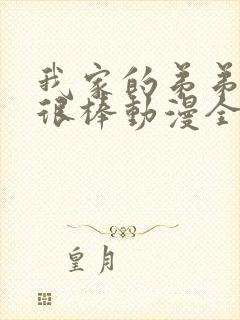 我家的弟弟
很棒動漫全
皇月